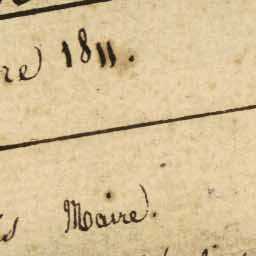 re 1811.
is Maire.